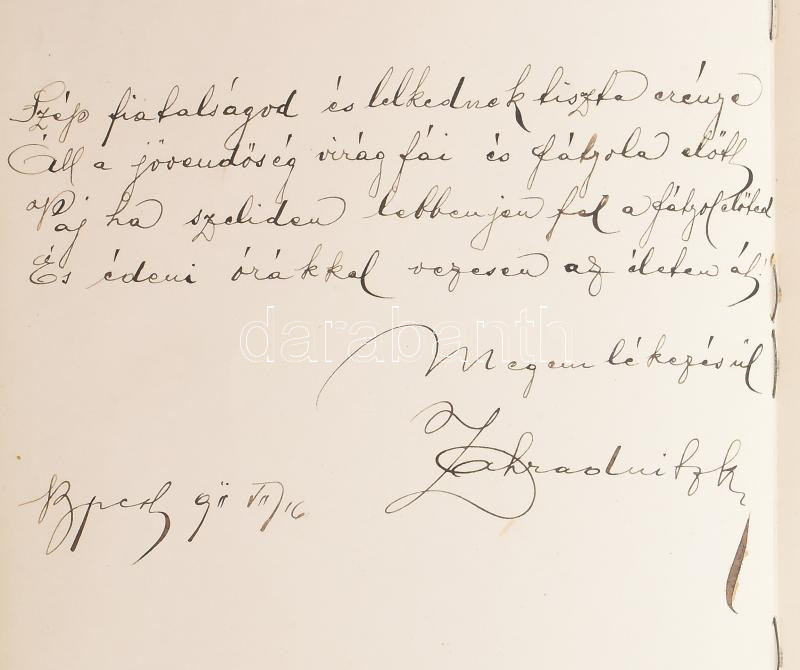 Szép fiatalságod és lelkednek tiszta erénye
Áll a jövendőség virágfái és fátyola előtt
Vaj ha szeliden lebbenjen fel a fátyol előted
És édeni órákkal vezesen az életen át.
darabanth
Megemlékezésül
Zahradnitzky
Bpest 911 VII/16